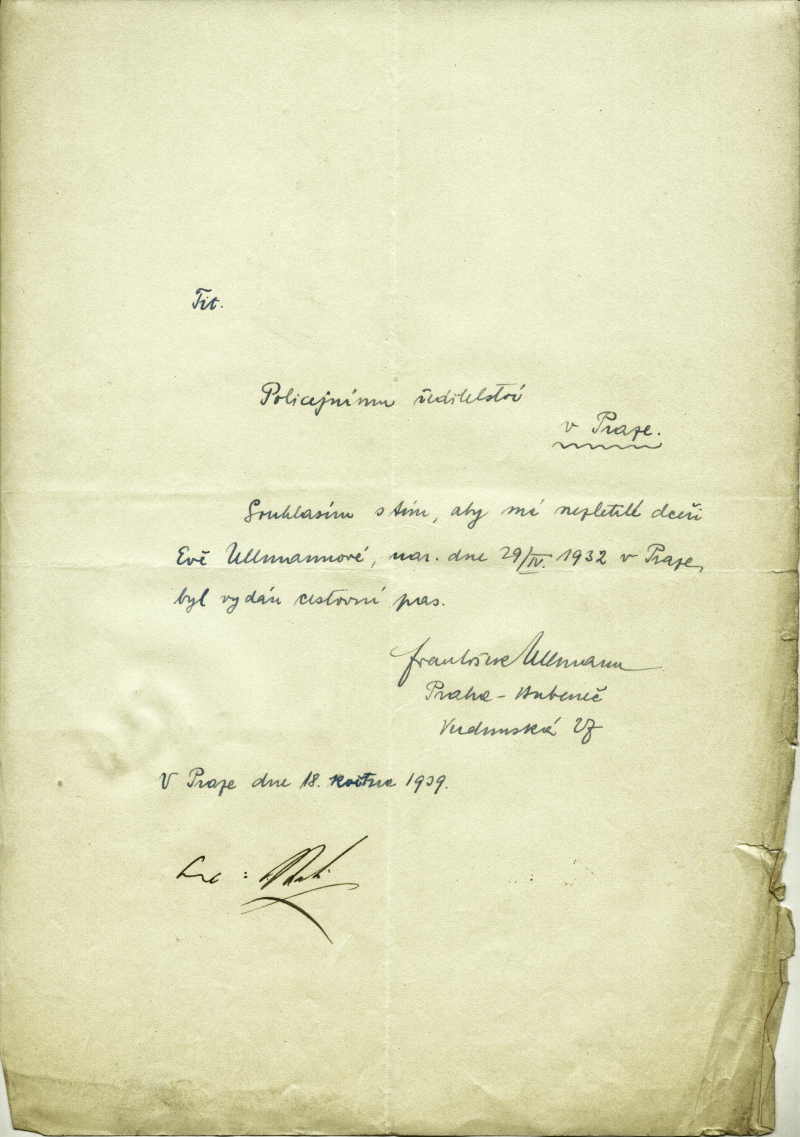 Tit.
Policejnímu ředitelství
v Praze.
Souhlasím s tím, aby mé nezletilé dceři
Evě Ullmannové, nar. dne 29/IV. 1932 v Praze,
byl vydán cestovní pas.
František Ullmann
Praha - Bubeneč
Verdunská
V Praze dne 18. května 1939.